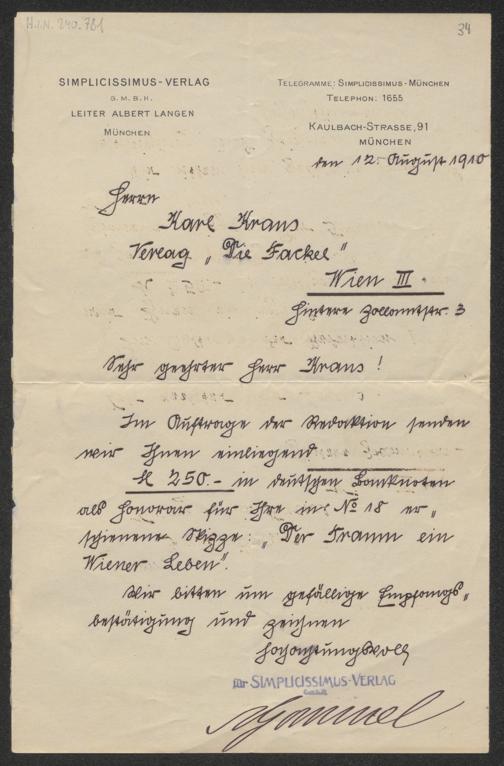 H.I.N. 240.781
34
SIMPLICISSIMUS-VERLAG
G.M.B.H.
LEITER ALBERT LANGEN
MÜNCHEN
TELEGRAMME: SIMPLICISSIMUS-MÜNCHEN
TELEPHON: 1655
KAULBACH-STRASSE, 91
MÜNCHEN
den 12. August 1910
Herrn
Karl Kraus
Verlag „Die Fackel"
Wien III.
Hintere Zollamtstr. 3
Sehr geehrter Herr Kraus!
Im Auftrage der Redaktion senden
wir Ihnen einliegend
M 250.- in deutschen Banknoten
als Honorar für Ihre in No 18 er„
schienene Skizze: „Der Traum ein
Wiener Leben".
Wir bitten um gefällige Empfangs„
bestätigung und zeichnen
hochachtungsvoll
für SIMPLICISSIMUS-VERLAG